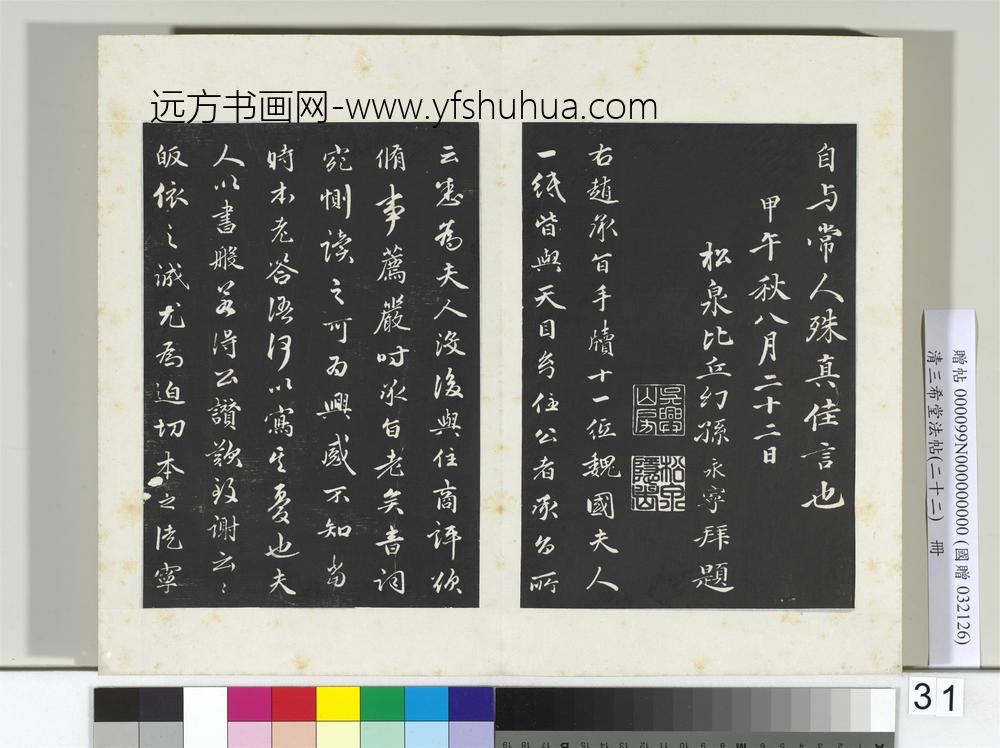 远方书画网-www.yfshuhua.com
自与常人殊真佳言也
甲午秋八月二十二日
松泉比丘幻孫永寧拜題
右趙承旨手牘十一紙魏國夫人
一紙皆與天目幻住公者承旨所
云悉為夫人沒後與住商評欲
脩事薦嚴時承旨老矣音詞
宛惻讀之可為興感不知當
時本老答語何以寫其憂也夫
人以書般若得公讚歎致謝云〻
皈依之誠尤為迫切本之徒寧
吳興山房
松泉
贈帖 000099N000000000 (國贈 032126)
清三希堂法帖(二十二) 冊
31